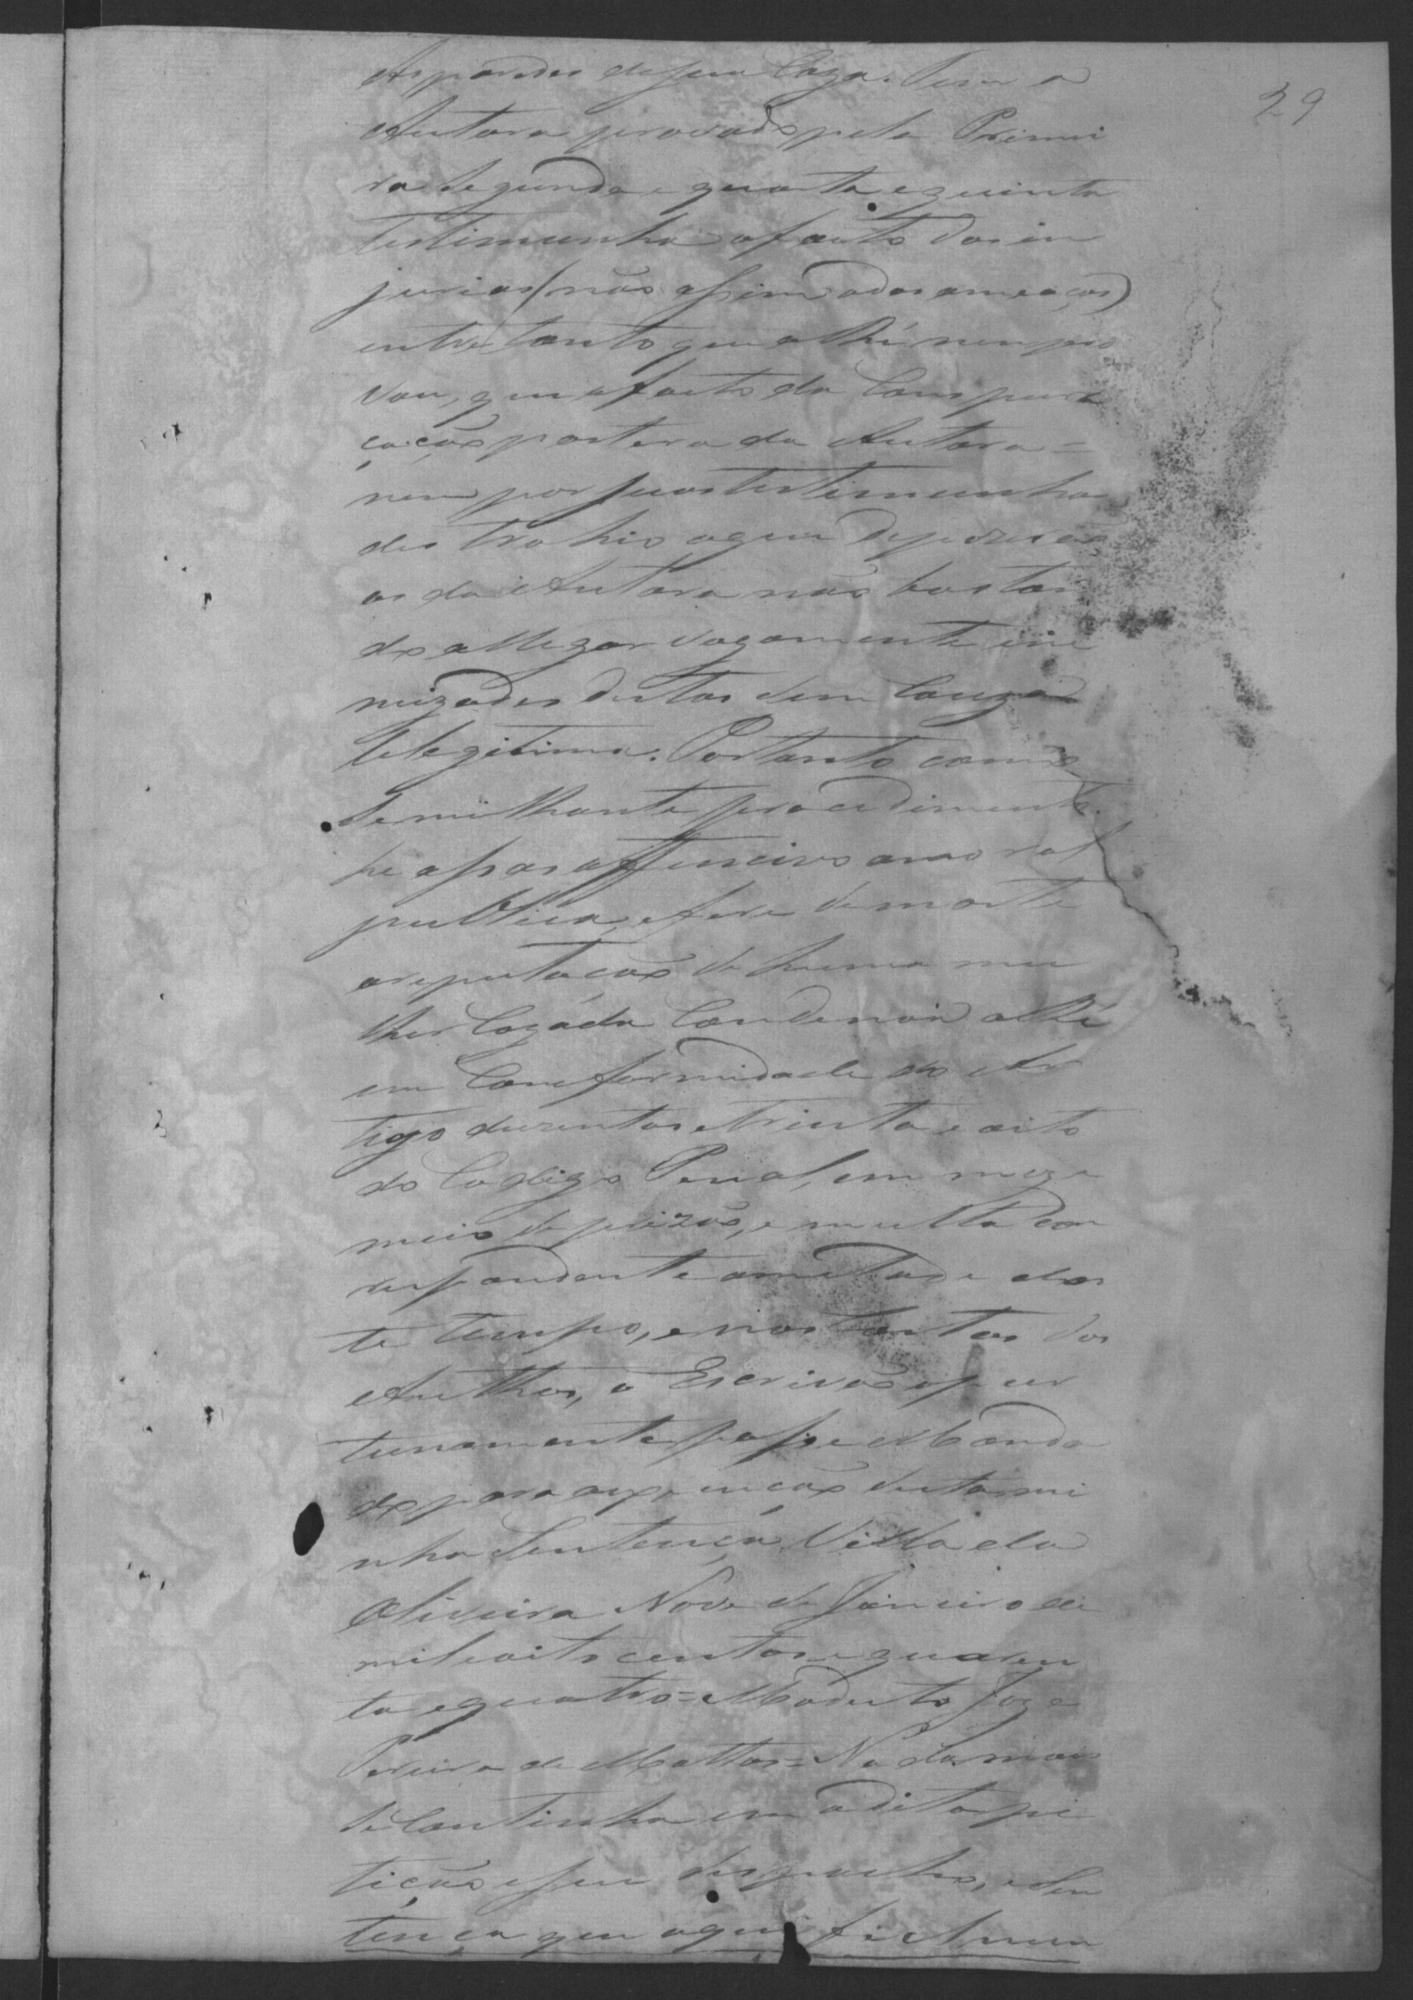 29
As paredes de sua Caza. Tem a
Autora provado pela Primei
ra Segunda e quarta e quinta
testimunha o facto das in
jurias (não assim o das ameaças)
entretanto que a Ré nem pro
vou, que o facto da Conspur
cação partera da Autora =
nem por suas testimunhas
destrohio aquer depozerão
as da Autora não bastan
do allegar vagamente ini
mizades destas sem Cauza
legitima. Portanto como
Semilhante procedimento
he assas offencivo a moral
publica, e fere de morte
a reputação de huma mu
lher Cazada Condemno a Ré
em Conformidade do Ar
tigo duzentos e trinta e oito
do Codigo Penal, em mez e
meio de prizão, e multa cor
respondente a metade des
te tempo, e nas Custas dos
Authos, o Escrivão opur
tunamente passe Manda
do para a execução desta mi
nha Sentença Villa da
Oliveira Nove de Janeiro de
mil e oito centos e quaren
ta e quatro = Modesto Joze
Pereira de Mattos = Nada mais
se Continha em a dita pe
tição e seu despacho, e Sen
tença que aqui